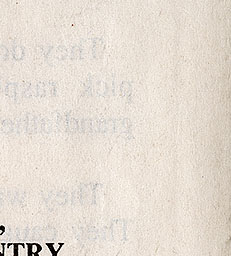 They do
pick rasp
grandfathe
They wa
,
They caug
NTRY